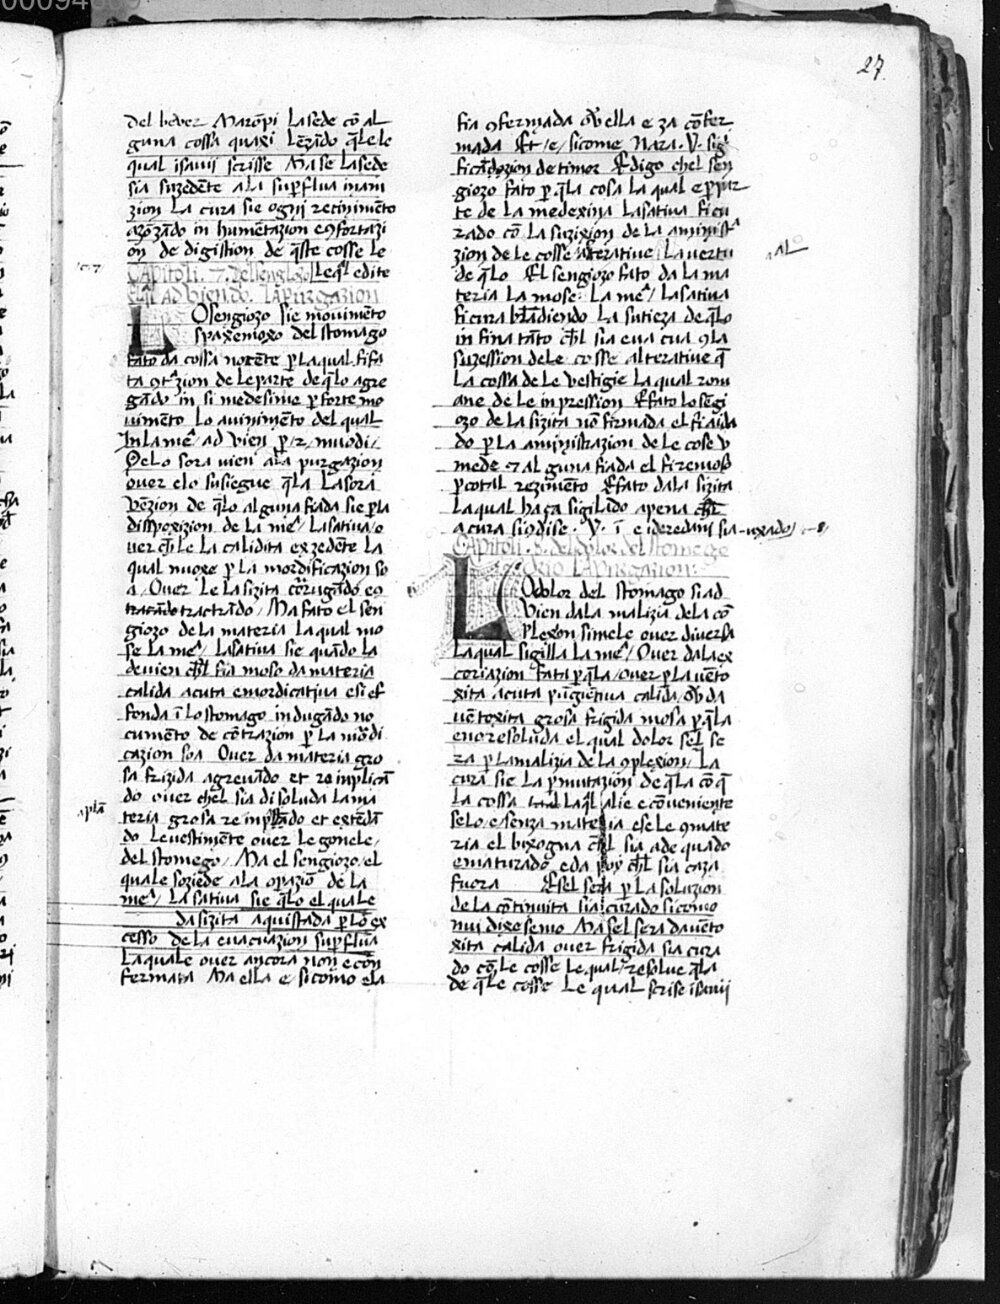 27
del bever Marōpi La sede cō al
guna cossa quaxi Lezādo q̄le le
qual isavii scrisse Ma se La sede
sia suzedente ala sup̄flua inani
zion La cura sie ogni retinimēto
azōzādo in humentazion e 9fortazi
on de digistion de q̄ste cosse le
Capitoli . 7 . del sengiozo Le q̄l edite
el q̄l ad vien do . La purgazion
LO sengiozo sie movimēto
spaxemoxo del stomago
fato da cossa nocēte p La qual fifa
ta 9t̄zion de le parte de q̄lo agre
gādo in si medesime p forte mo
vimēto Lo avinimēto del qual
In la me᷑ ad vien p / 2 / muodi /
O elo sora vien ala purgazion
over elo susiegue q̄la La sora
vēzion de q̄lo alguna fiada sie p la
dissposizion de la me᷑ / Lasativa / o
ver ch̄l Le La calidita exzedēte La
qual nuoxe p la mordificazion so
a / Over Le La sizita cōrugādo e 9
tractrādo / Ma fato el sen
giozo de la materia La qual mo
se la me᷑ / Lasativa sie quādo la
devien ch̄l fia moso da materia
calida acuta e mordicativa e si ef
fonda ī lo stomago indugādo no
cumēto de cōtrazion p la mordi
cazion soa Over da materia gro
sa frizida agrevādo et re inplicā
do over chel sia disoluda La ma
teria grosa re inplādo et extēdā
do Le vestimēte over Le gonele /
del stomego / Ma el sengiozo / el
quale soziede ala opazio de la
me᷑ / La sativa sie q̄lo el quale
da sizita aquistada p lo ex
cesso de la evacuazion sup̄flua
La quale over ancora non e con
fermata Ma ella e / sicomo ela
fia 9fermada ov̄ ella e za cōfer
mada Et / e / sicome Nara . V . sig
ficādozion de timor E digo chel sen
giozo fato p q̄la cosa la qual e p par
te de la medexina Lasativa fi cu
rado cō la suzixion de la aminist
zion de le cosse alterative La vertu
de q̄lo El sengiozo fato da la ma
teria La mose : La me᷑ / Lasativa
fi cura blādiendo La sutieza de q̄lo
in fina tāto ch̄l sia eva cua 9 la
suzession dele cosse alterative q̄
La cossa de le vestigie La qual rom
ane de le inpression E fato lo sēgi
ozo de la sizita nō firmada el fi aida
do p la aministrazion de le cose v
mede 7 al guna fiada el fi remoso
p cotal rezimēto E fato dala sizita
La qual haça sigilado apena ch̄l
a cura si ndise . V . ī e idere dani sia uxado /
Capitoli . 8 . del dolor del stomego
drio La purgazion :
LO dolor del stomago si ad
vien dala malizia dela cō
plexon simele over diversa
La qual sigilla La me᷑ / Over dala ex
coriazion fata p q̄la / over p la vēto
xita acuta pūgētiva calida / ov̄ da
vētoxita grosa frigida mosa p q̄la
e no resoluda el qual dolor sel se
ra p la malizia de la 9plexion / La
cura sie La pmutazion de q̄la cō q̄
La cossa La q̄l alie e cōveniente
se lo / e / senza materia e se le 9 mate
ria el bixogna ch̄l sia ade quado
e maturado e da poy ch̄l sia caza
fuora E sel sera p La soluzion
de la cōtinuita sia curado sicomo
nui dixesemo Ma sel sera da vēto
xita calida over frigida sia cura
do cō le cosse Le qual resolve q̄la
de q̄le cosse Le qual scrise isavii